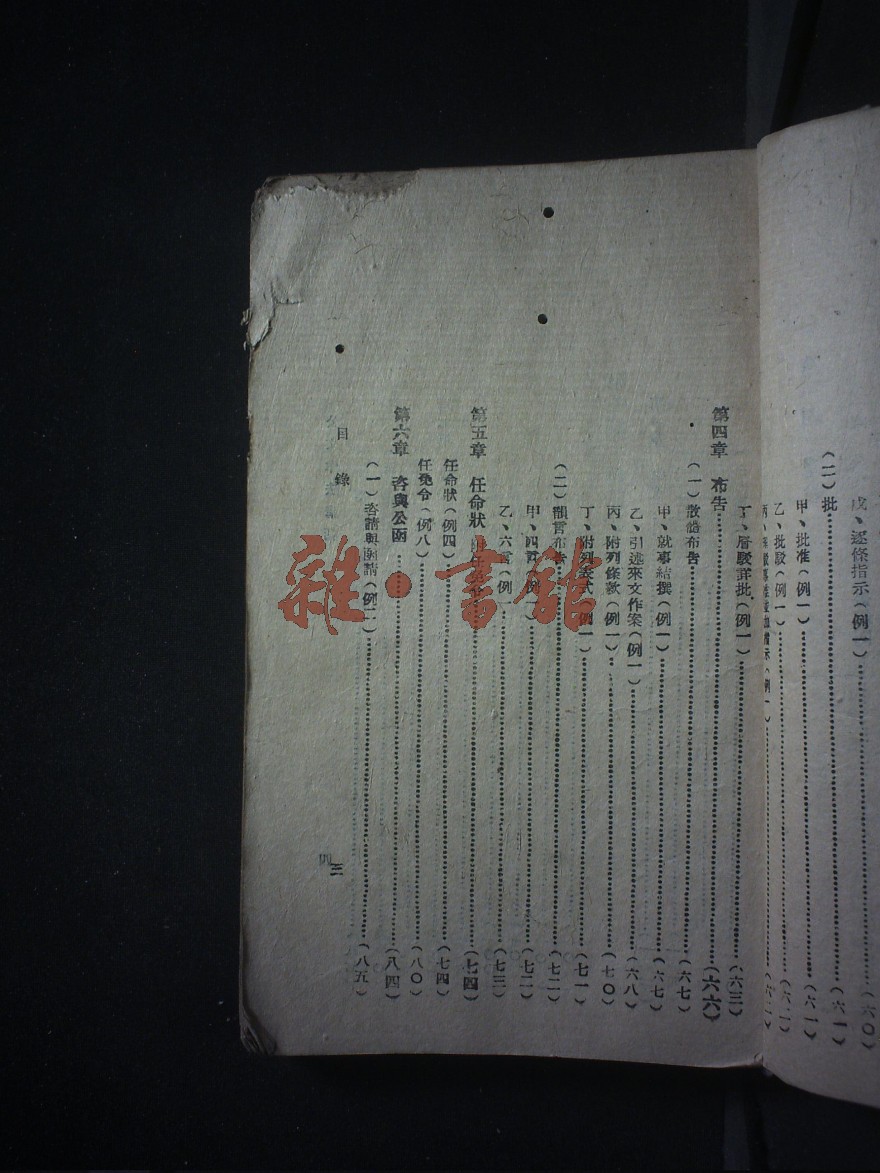 戊、逐條指示(例一)……(六〇)
(二)批……(六一)
甲、批准(例一)……(六一)
乙、批駁(例一)……(六二)
丁、層駁詳批(例一)……(六三)
第四章 布告……(六六)
(一)散體布告……(六七)
甲、就事結撰(例一)……(六七)
乙、引述來文作案(例一)……(六八)
丙、附列條款(例一)……(七〇)
丁、附列表式(例一)……(七一)
(二)韻言布告……(七二)
甲、四言(例一)……(七二)
乙、六言(例……(七三)
第五章 任命狀……(七四)
任命狀(例四)……(七四)
任免令(例八)……(八〇)
第六章 咨與公函……(八四)
(一)咨請與函請(例二)……(八五)
目錄
三
雜·書館